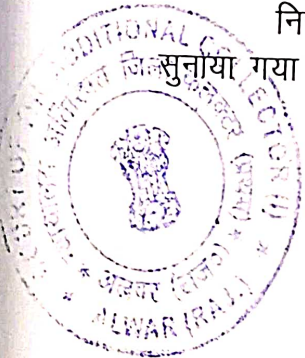 नि
सुनाया गया
COURT OF THE ADDITIONAL COLLECTOR (I)
अतिरिक्त जिला कलेक्टर (प्रथम)
* अलवर (राज.) *
* ALWAR (RAJ.) *